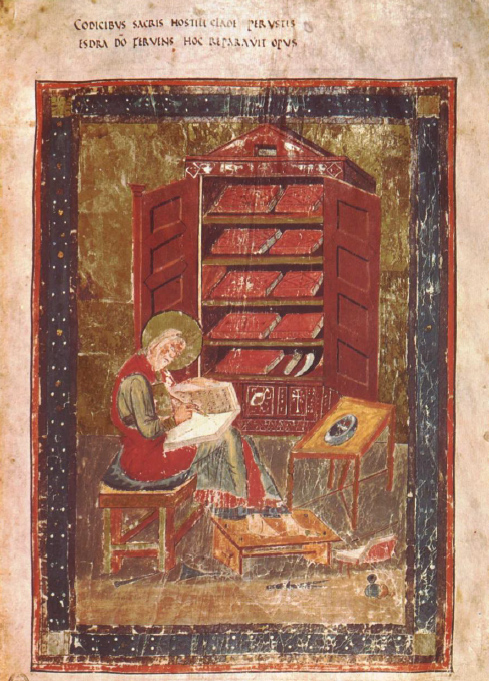 CODICIBUS SACRIS HOSTILI CLADE PERUSTIS
ESDRA DÕ FERVENS HOC REPARAVIT OPUS